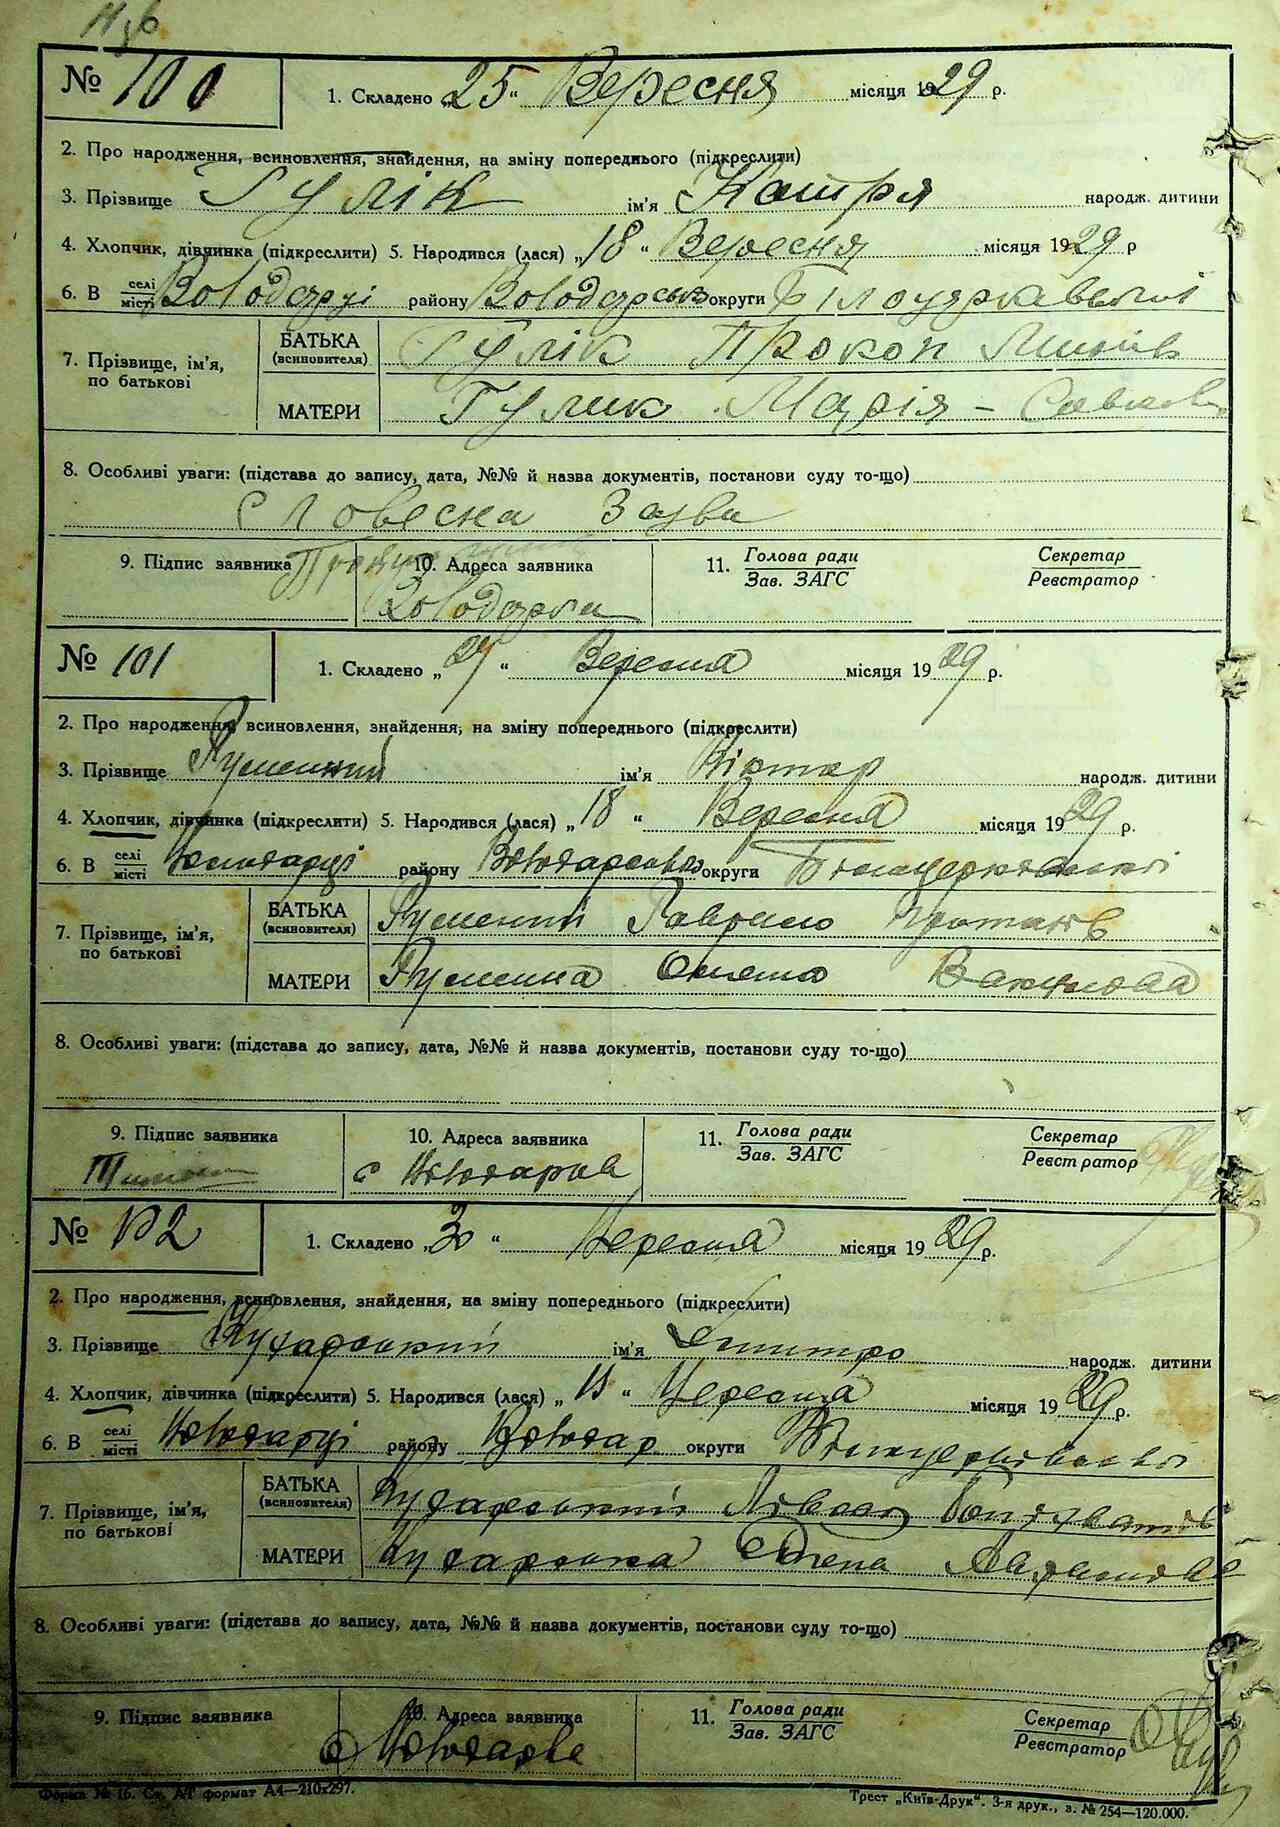 № 100
1. Складено „25“ Вересня місяця 1929 р.
2. Про народження, всиновлення, знайдення, на зміну попереднього (підкреслити)
3. Прізвище Гулік ім'я Катря народж. дитини
4. Хлопчик, дівчинка (підкреслити) 5. Народився (лася) „18“ Вересня місяця 1929 р
6. В селі/місті Володарці району Володарськ округи Білоцеркавської
7. Прізвище, ім'я, по батькові
БАТЬКА (всиновителя) Гулік Прокоп
МАТЕРИ Гулик Марія –
8. Особливі уваги: (підстава до запису, дата, №№ й назва документів, постанови суду то-що)
Словесна Заява
9. Підпис заявника 10. Адреса заявника 11. Голова ради Секретар
Зав. ЗАГС Реєстратор
Володарка
№ 101
1. Складено „27“ Вересня місяця 1929 р.
2. Про народження, всиновлення, знайдення, на зміну попереднього (підкреслити)
3. Прізвище ім'я Віктар народж. дитини
4. Хлопчик, дівчинка (підкреслити) 5. Народився (лася) „18“ Вересня місяця 1929 р.
6. В селі/місті Володарці району Володарської округи Білоцерківської
7. Прізвище, ім'я, по батькові
БАТЬКА (всиновителя) Гаврило
МАТЕРИ
8. Особливі уваги: (підстава до запису, дата, №№ й назва документів, постанови суду то-що)
9. Підпис заявника 10. Адреса заявника 11. Голова ради Секретар
Зав. ЗАГС Реєстратор
с Володарка
№ 102
1. Складено „30“ Вересня місяця 1929 р.
2. Про народження, всиновлення, знайдення, на зміну попереднього (підкреслити)
3. Прізвище Кухарський ім'я Дмитро народж. дитини
4. Хлопчик, дівчинка (підкреслити) 5. Народився (лася) „ “ Вересня місяця 1929 р.
6. В селі/місті Володарці району Володар округи Білоцерківської
7. Прізвище, ім'я, по батькові
БАТЬКА (всиновителя) Кухарський
МАТЕРИ Кухарська Олена
8. Особливі уваги: (підстава до запису, дата, №№ й назва документів, постанови суду то-що)
9. Підпис заявника 10. Адреса заявника 11. Голова ради Секретар
Зав. ЗАГС Реєстратор
с Володарка
Форма № 16. Ст. А/Г формат А4—210x297.
Трест „Київ-Друк“. 3-я друк., з. № 254—120.000.